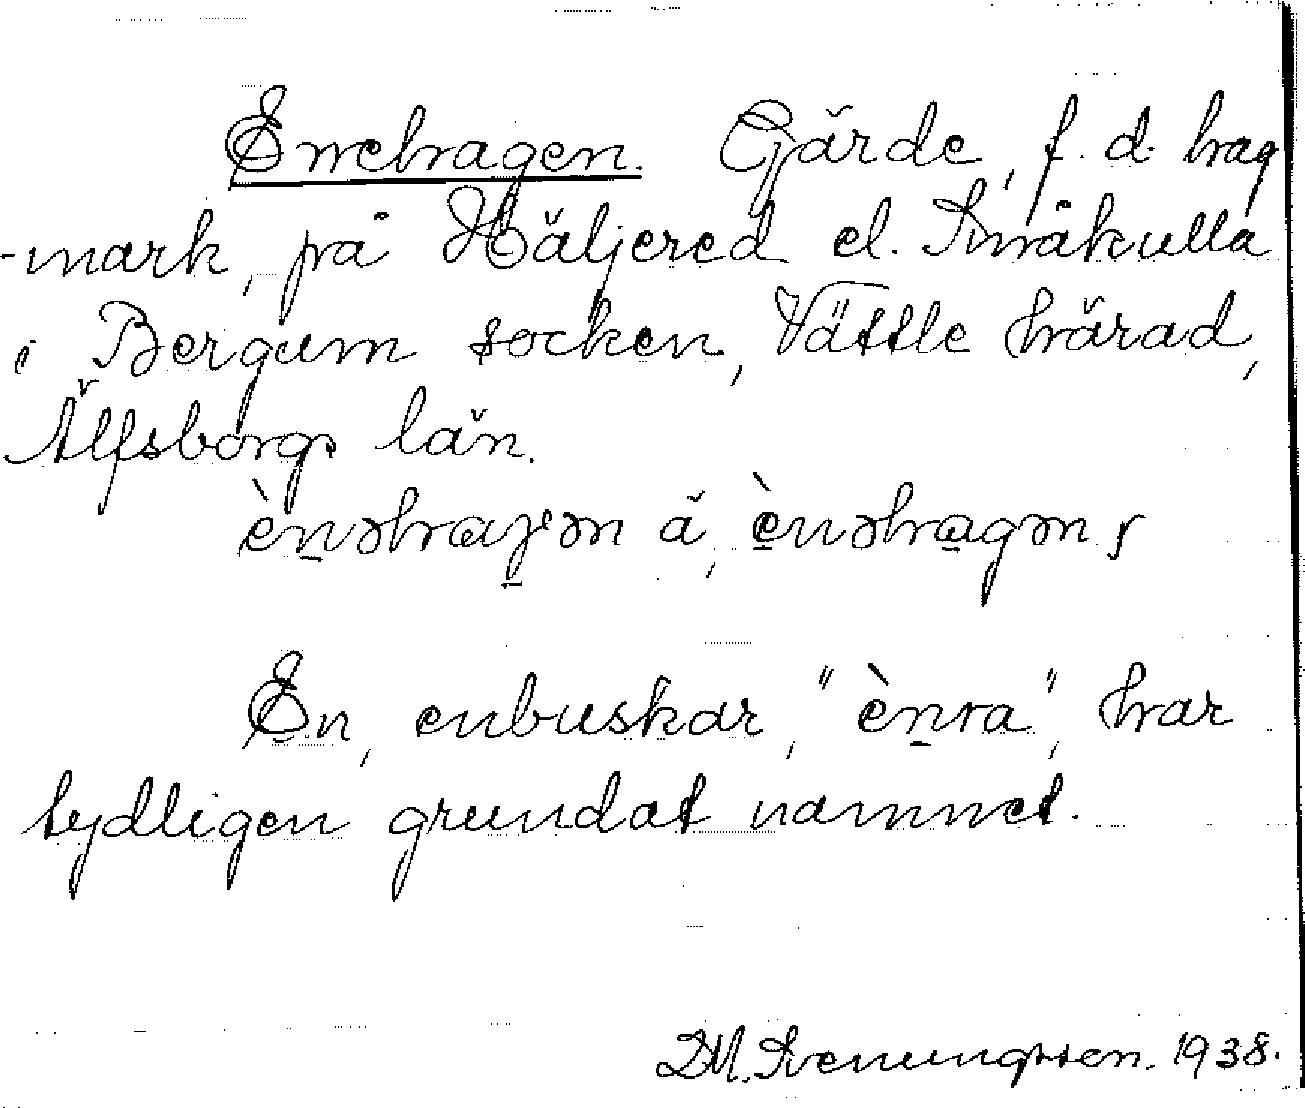 Enehagen. Gärde, f. d. hag
-mark, på Häljered el. Småkulla
i Bergum socken, Vättle härad,
Älfsborgs län.
èn̠əhaɡən ä, è̠nəha̠gən,
En, enbuskar, "èn̠ra", har
tydligen grundat namnet.
D.M. Svenungsson. 1938.